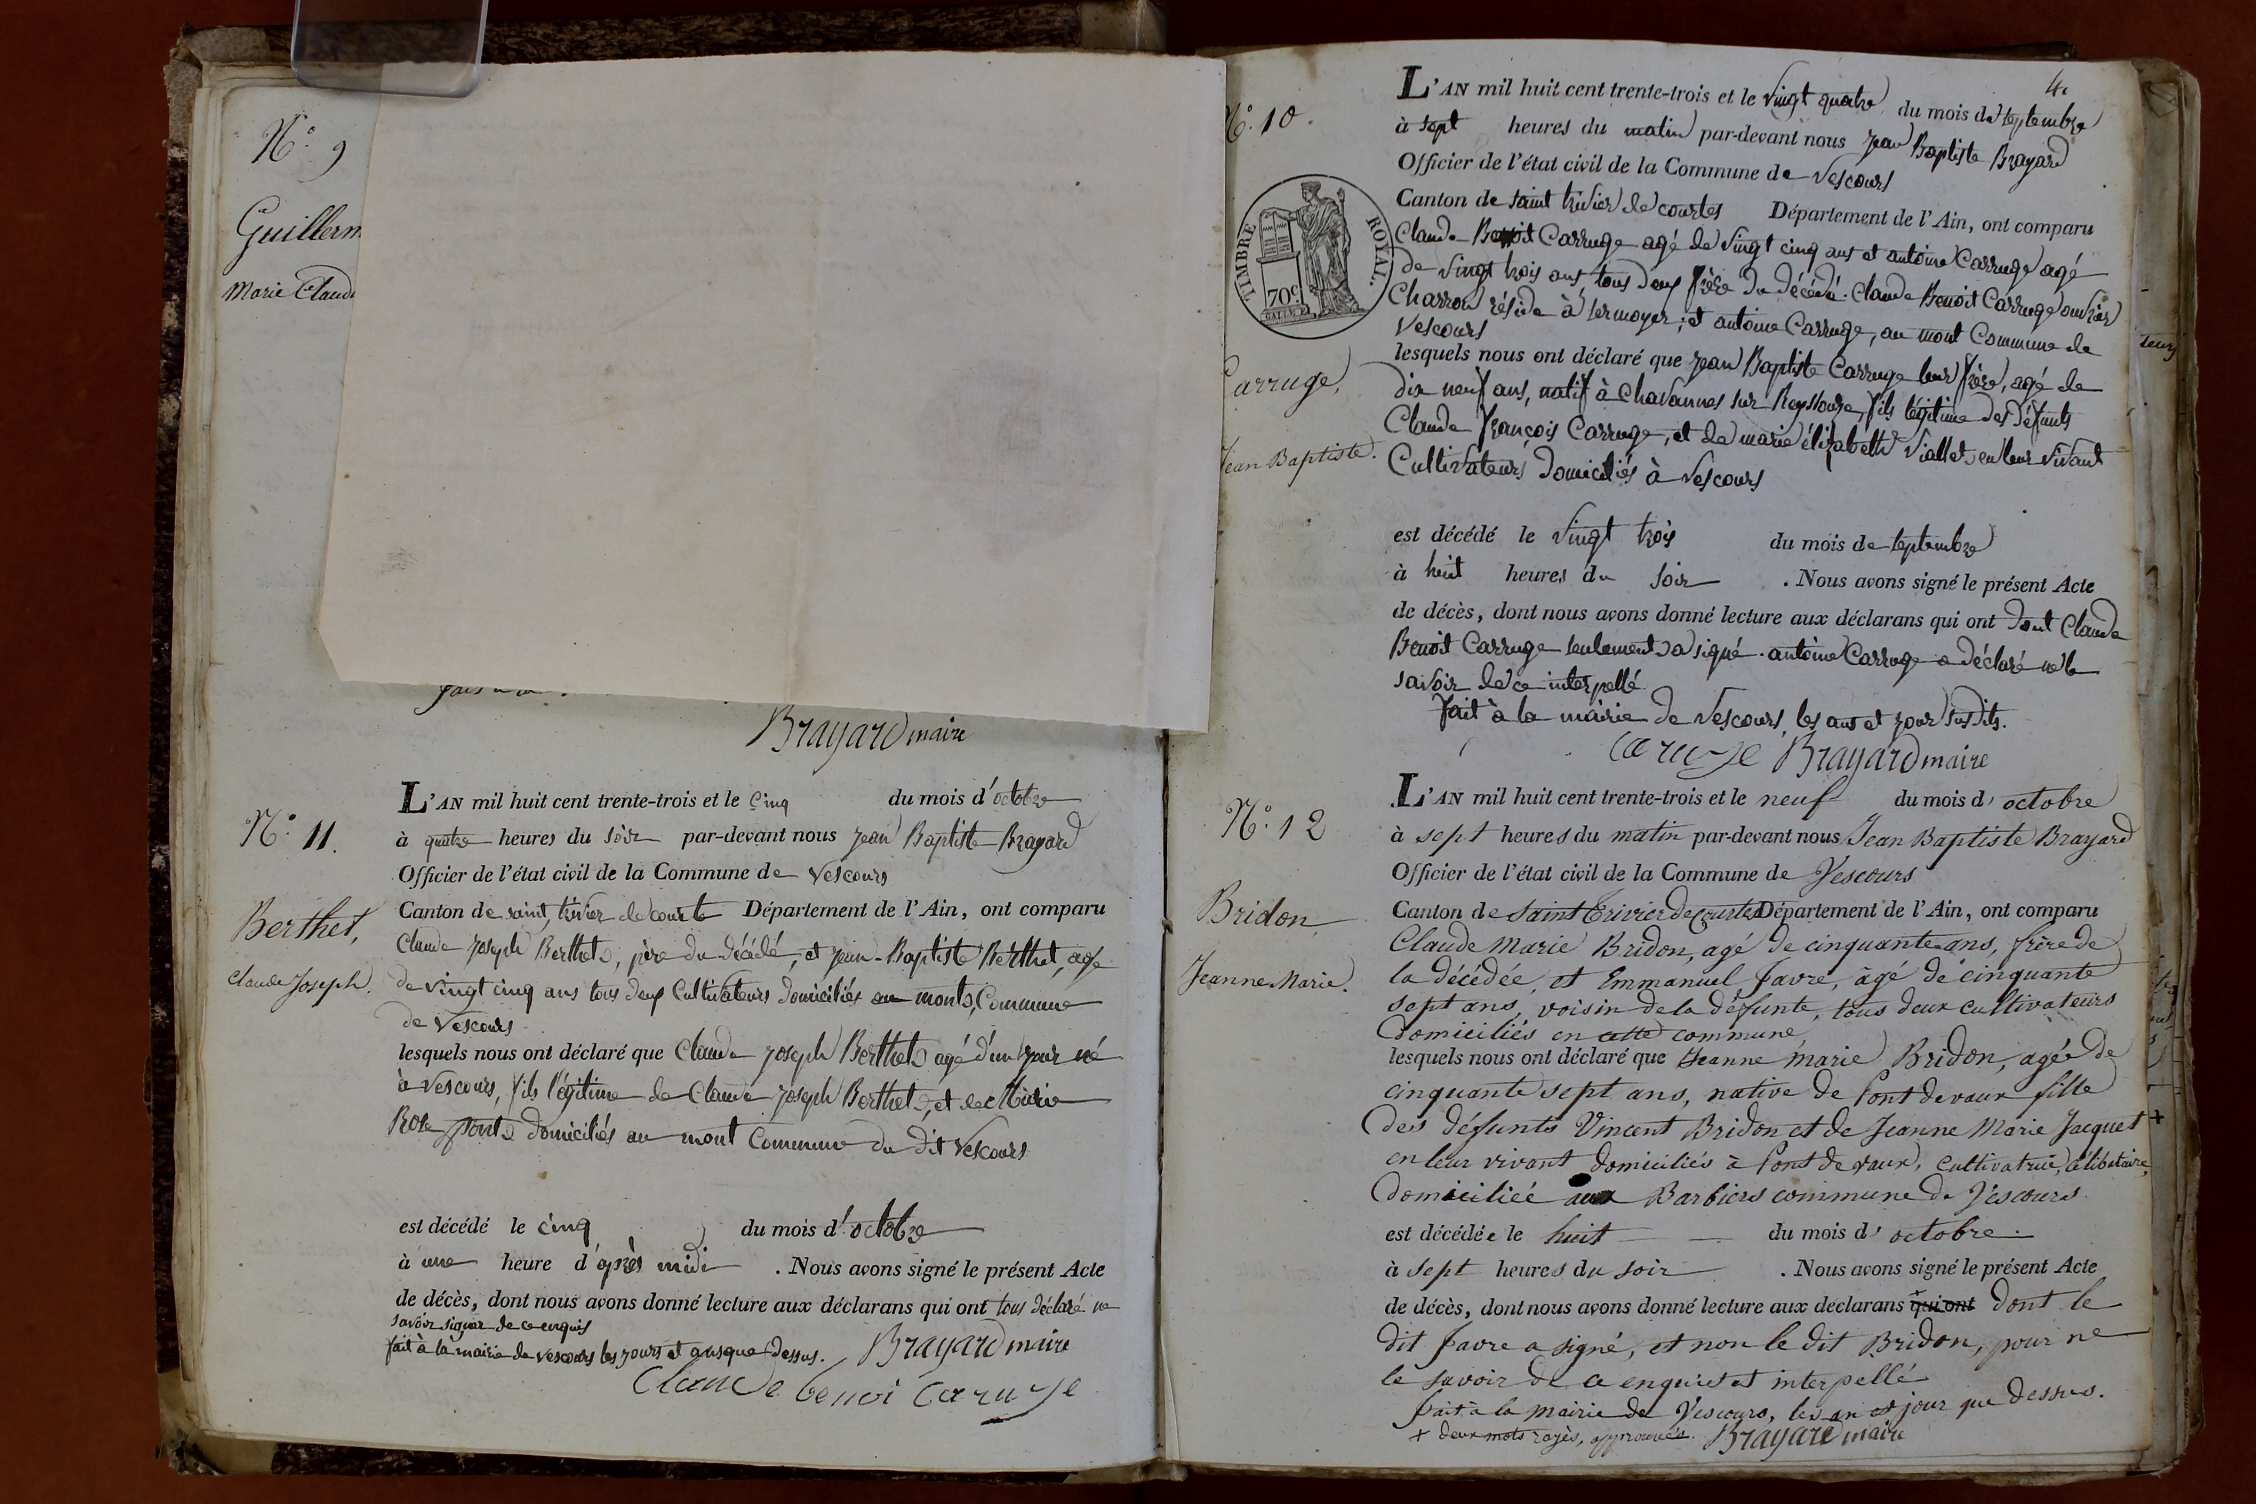 N.° 9
Guillerm
Marie Claud
Brayard maire
N.° 11.
Berthet,
Claude Joseph.
L'AN mil huit cent trente-trois et le cinq du mois d'octobre
à quatre heures du soir par-devant nous jean Baptiste Brayard
Officier de l'état civil de la Commune de Vescours
Canton de saint trivier de courte Département de l'Ain, ont comparu
Claude joseph Berthet, père du décédé, et jean-Baptiste Berthet, agé
de vingt cinq ans tous deux Cultivateurs domiciliés au mont, Commune
de Vescours
lesquels nous ont déclaré que Claude joseph Berthet agé d'un jour né
à Vescours, fils légitime de Claude joseph Berthet, et de Marie
Rose pont domiciliés au mont Commune du dit Vescours
est décédé le cinq du mois d'octobre
à une heure d'après midi . Nous avons signé le présent Acte
de décès, dont nous avons donné lecture aux déclarans qui ont tous déclaré ne
savoir signer de ce enquis
fait à la mairie de vescours les jours et an que dessus. Brayard maire
Claude benoi Caruge
4.
N.° 10.
TIMBRE ROYAL.
70c.
Carruge,
Jean Baptiste.
L'AN mil huit cent trente-trois et le vingt quatre du mois de septembre
à sept heures du matin par-devant nous jean Baptiste Brayard
Officier de l'état civil de la Commune de Vescours
Canton de saint trivier de courtes Département de l'Ain, ont comparu
Claude Benoit Carruge agé de vingt cinq ans et antoine Carruge agé
de vingt trois ans, tous deux frère du décédé. Claude Benoit Carruge ouvrier
Charron réside à sermoyer; et antoine Carruge, au mont Commune de
Vescours
lesquels nous ont déclaré que jean Baptiste Carruge leur frère, agé de
dix neuf ans, natif à Chavannes sur Reyssouze, fils légitime des défunts
Claude françois Carruge, et de marie élizabeth Viallet en leur vivant
Cultivateurs domiciliés à Vescours
est décédé le vingt trois du mois de septembre
à huit heures du soir . Nous avons signé le présent Acte
de décès, dont nous avons donné lecture aux déclarans qui ont dont Claude
Benoit Carruge seulement a signé. antoine Carruge a déclaré ne le
savoir de ce interpellé
fait à la mairie de Vescours, les an et jour susdits.
Caruge Brayard maire
N.° 12
Bridon
Jeanne Marie.
L'AN mil huit cent trente-trois et le neuf du mois d'octobre
à sept heures du matin par-devant nous Jean Baptiste Brayard
Officier de l'état civil de la Commune de Vescours
Canton de Saint Trivier de Courtes Département de l'Ain, ont comparu
Claude Marie Bridon, agé de cinquante ans, frère de
la décédée, et Emmanuel favre, agé de cinquante
sept ans, voisin de la défunte, tous deux cultivateurs
domiciliés en cette commune,
lesquels nous ont déclaré que Jeanne Marie Bridon, agée de
cinquante sept ans, native de Pont de vaux fille
des défunts Vincent Bridon et de Jeanne Marie Jacquet
en leur vivant domiciliés à Pont de vaux, cultivatrice, célibataire,
domiciliée aux Barbiers commune de Vescours
est décédée le huit du mois d'octobre.
à sept heures du soir . Nous avons signé le présent Acte
de décès, dont nous avons donné lecture aux déclarans qui ont dont le
dit favre a signé, et non le dit Bridon, pour ne
le savoir de ce enquis et interpellé
fait à la Mairie de Vescours, les an et jour que dessus.
+ deux mots rayés, approuvés. Brayard maire